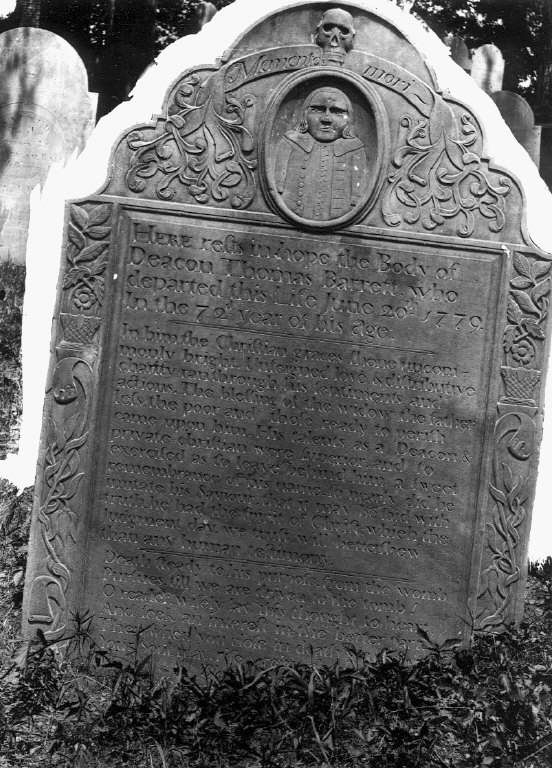 Memento mori
HERE rests in hope the Body of
Deacon Thomas Barrett, who
departed this Life June 20th 1779.
In the 72d year of his age.
In him the Christian graces shone uncom-
monly bright. Unfeigned love & distributive
charity ran through his sentiments and
actions. The blessing of the widow the father
less the poor and those ready to perish
came upon him. His talents as a Deacon &
private christian were superior and so
exercised as to leave behind him a sweet
remembrance of his name. So nearly did he
imitate his Saviour, that it may be said with
truth, he had the spirit of Christ, which the
judgment day we trust will better shew
than any human testimony.
Death steady to his purpose, from the womb
Pursues till we are driven to the tomb;
O reader, wisely lay this thought to heart
And seek an interest in the better part